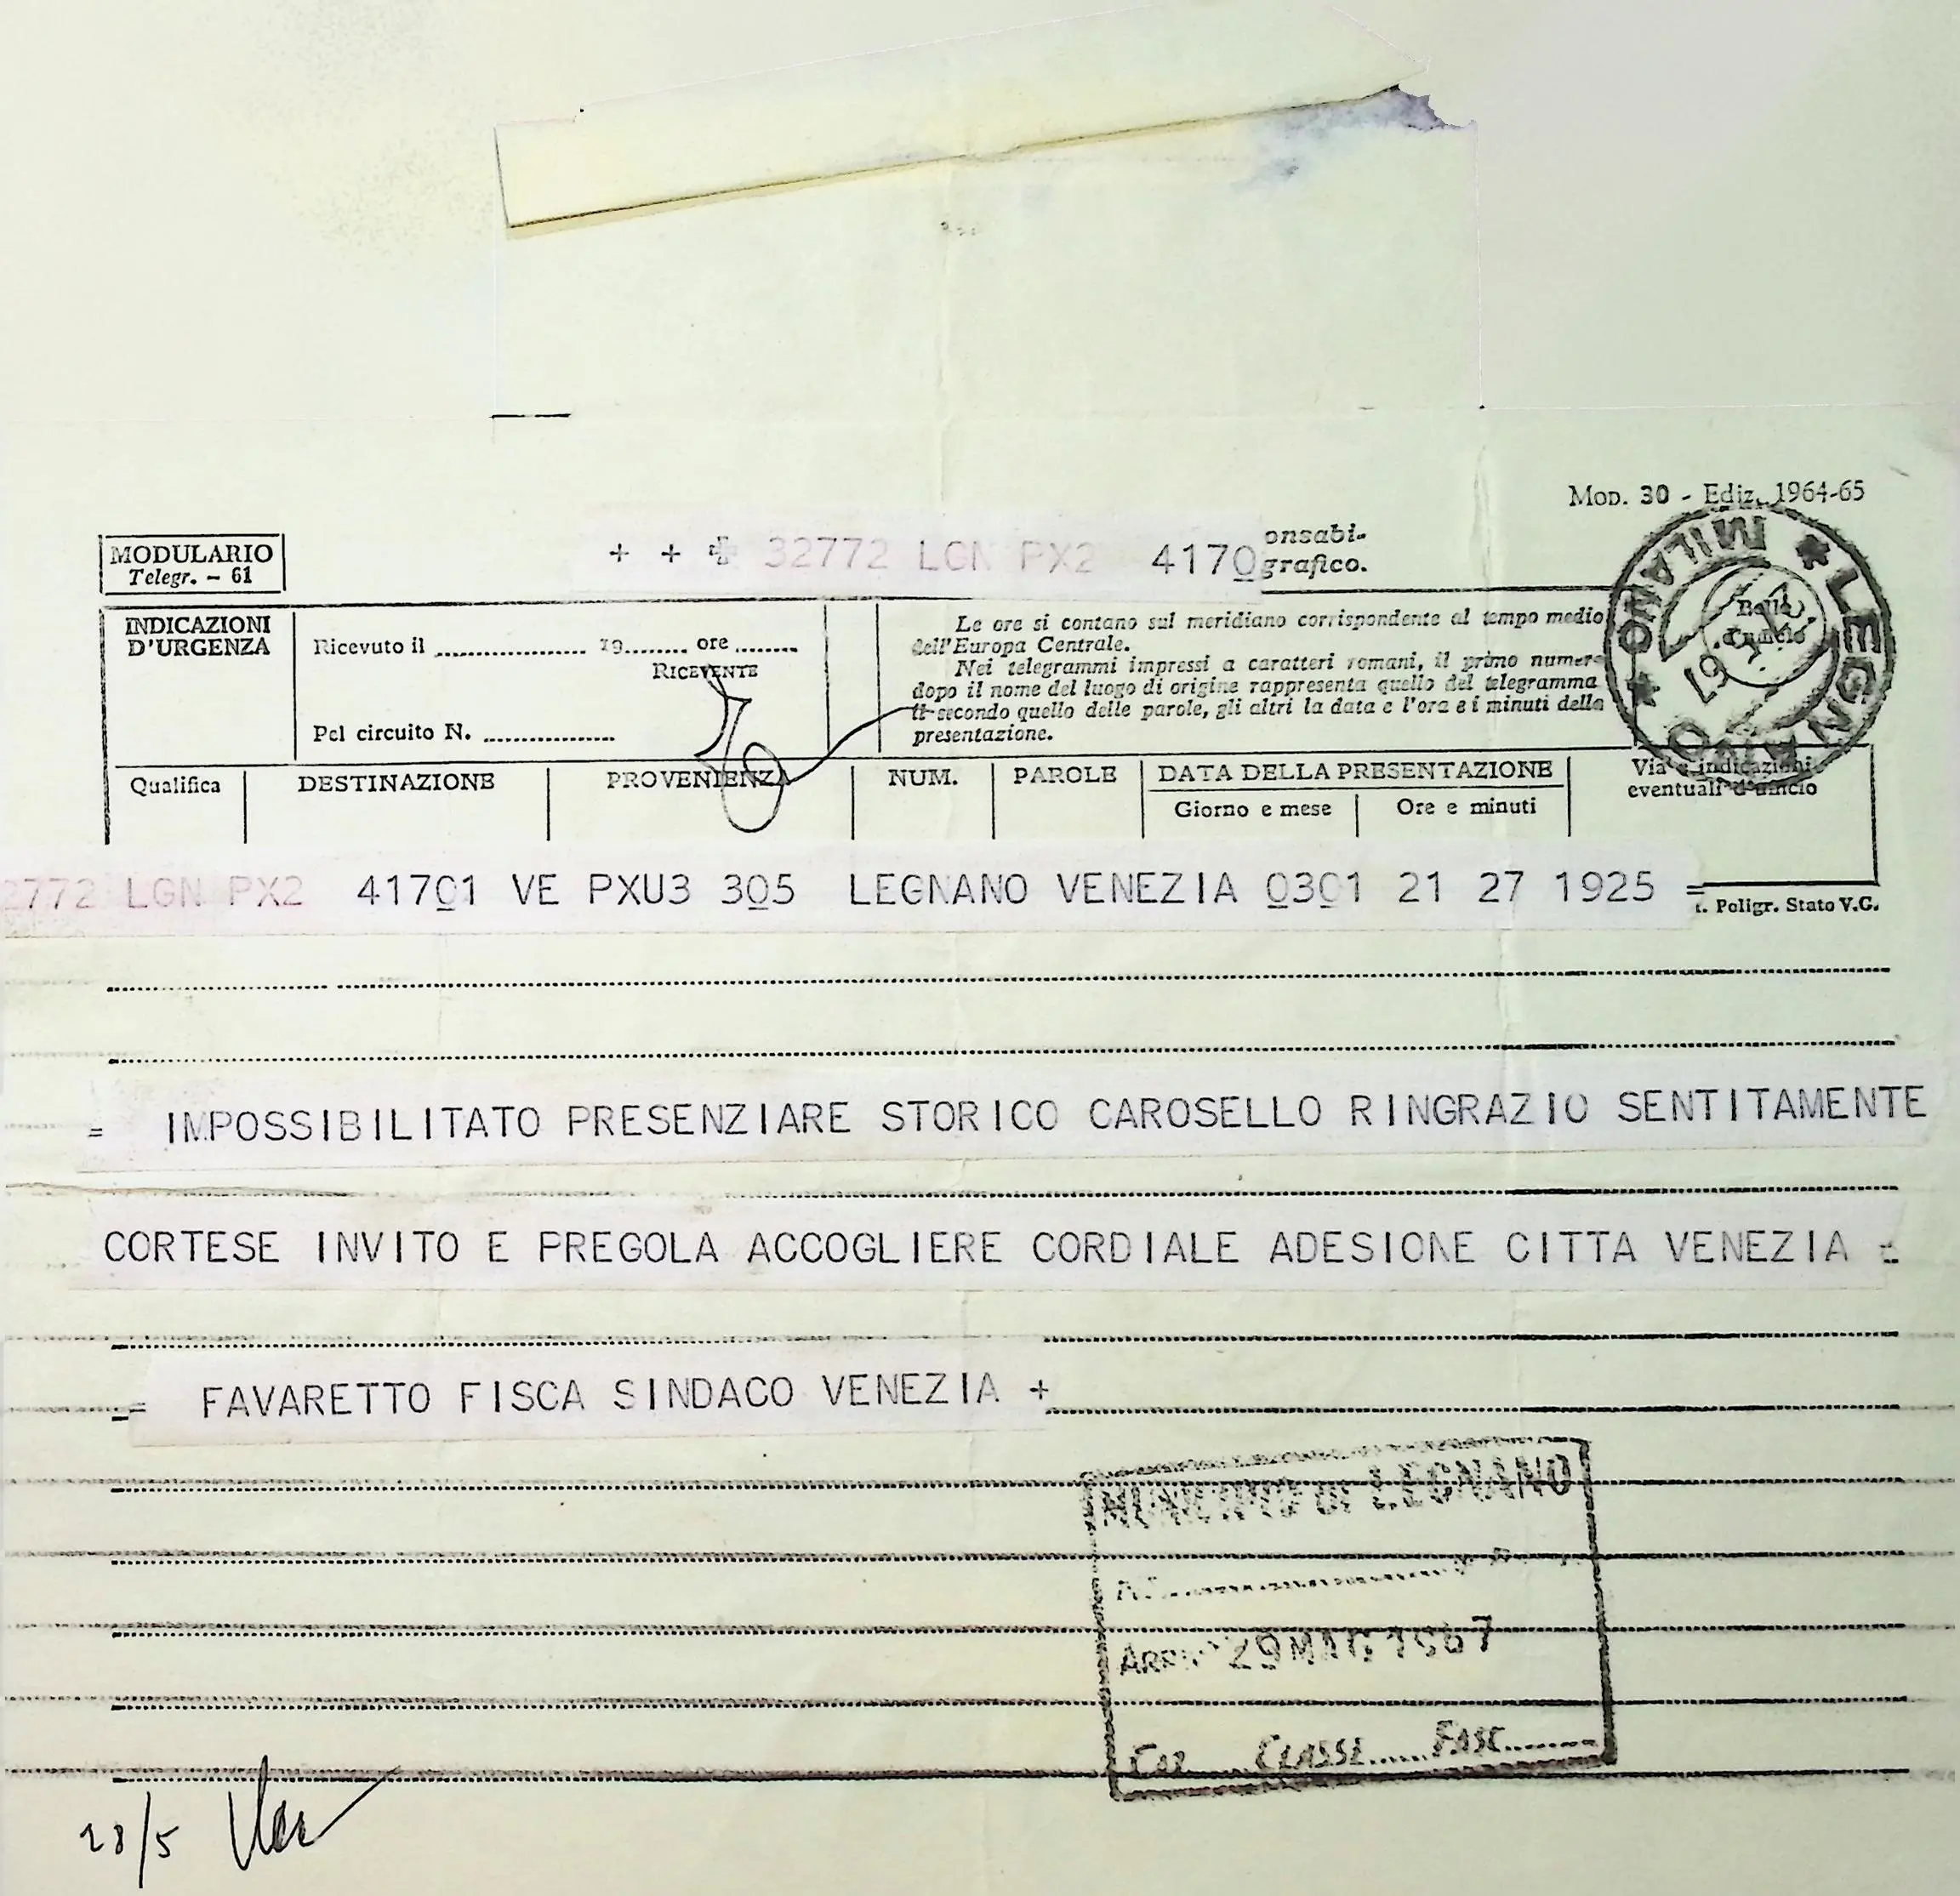 Mod. 30 - Ediz. 1964-65
MODULARIO
Telegr. - 61
+ + + 32772 LGN PX2 4170
onsabi-
grafico.
LEGNANO * MILANO *
Bollo
d'ufficio
67
INDICAZIONI
D'URGENZA
Ricevuto il ................ 19........ ore ........
RICEVENTE
Pel circuito N. ................
Le ore si contano sul meridiano corrispondente al tempo medio
dell'Europa Centrale.
Nei telegrammi impressi a caratteri romani, il primo numero
dopo il nome del luogo di origine rappresenta quello del telegramma
il secondo quello delle parole, gli altri la data e l'ora e i minuti della
presentazione.
Qualifica DESTINAZIONE PROVENIENZA NUM. PAROLE DATA DELLA PRESENTAZIONE
Giorno e mese Ore e minuti
Via e indicazioni
eventuali d'ufficio
2772 LGN PX2 41701 VE PXU3 305 LEGNANO VENEZIA 0301 21 27 1925 =
t. Poligr. Stato V.C.
= IMPOSSIBILITATO PRESENZIARE STORICO CAROSELLO RINGRAZIO SENTITAMENTE
CORTESE INVITO E PREGOLA ACCOGLIERE CORDIALE ADESIONE CITTA VENEZIA =
= FAVARETTO FISCA SINDACO VENEZIA +
MUNICIPIO DI LEGNANO
29 MAG 1967
CAT CLASSE...... FASC.........
28/5